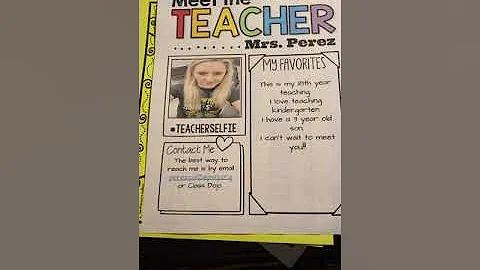 Meet the
TEACHER
Mrs. Perez
#TEACHERSELFIE
Contact Me
The best way to
reach me is by email
or Class Dojo.
MY FAVORITES
This is my 18th year
teaching.
I love teaching
kindergarten.
I have a 9 year old
son.
I can't wait to meet
you!!